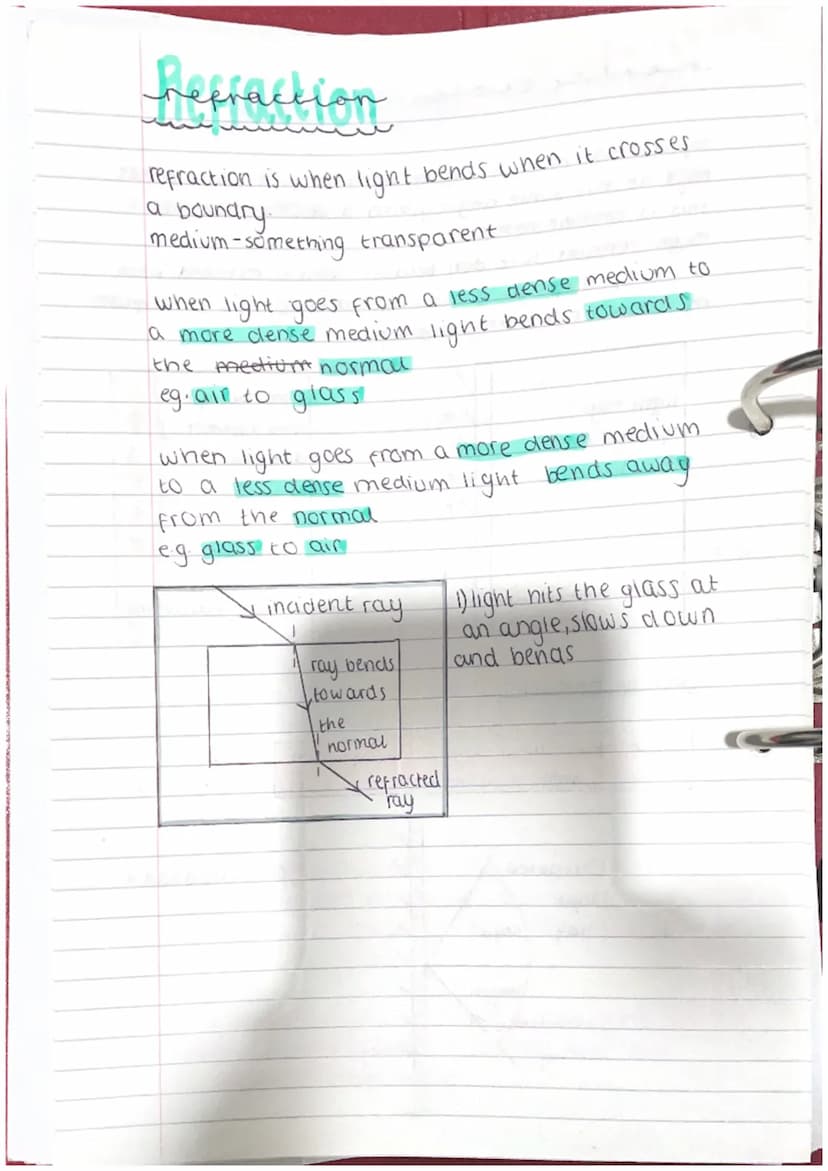 Refraction
refraction
refraction is when light bends when it crosses
a boundry.
medium - something transparent
when light goes from a less dense medium to
a more dense medium light bends towards
the medium normal
eg. air to glass
when light goes from a more dense medium
to a less dense medium light bends away
from the normal
e.g. glass to air
incident ray
ray bends
towards
the
normal
refracted
ray
1) light hits the glass at
an angle, slows down
and bends